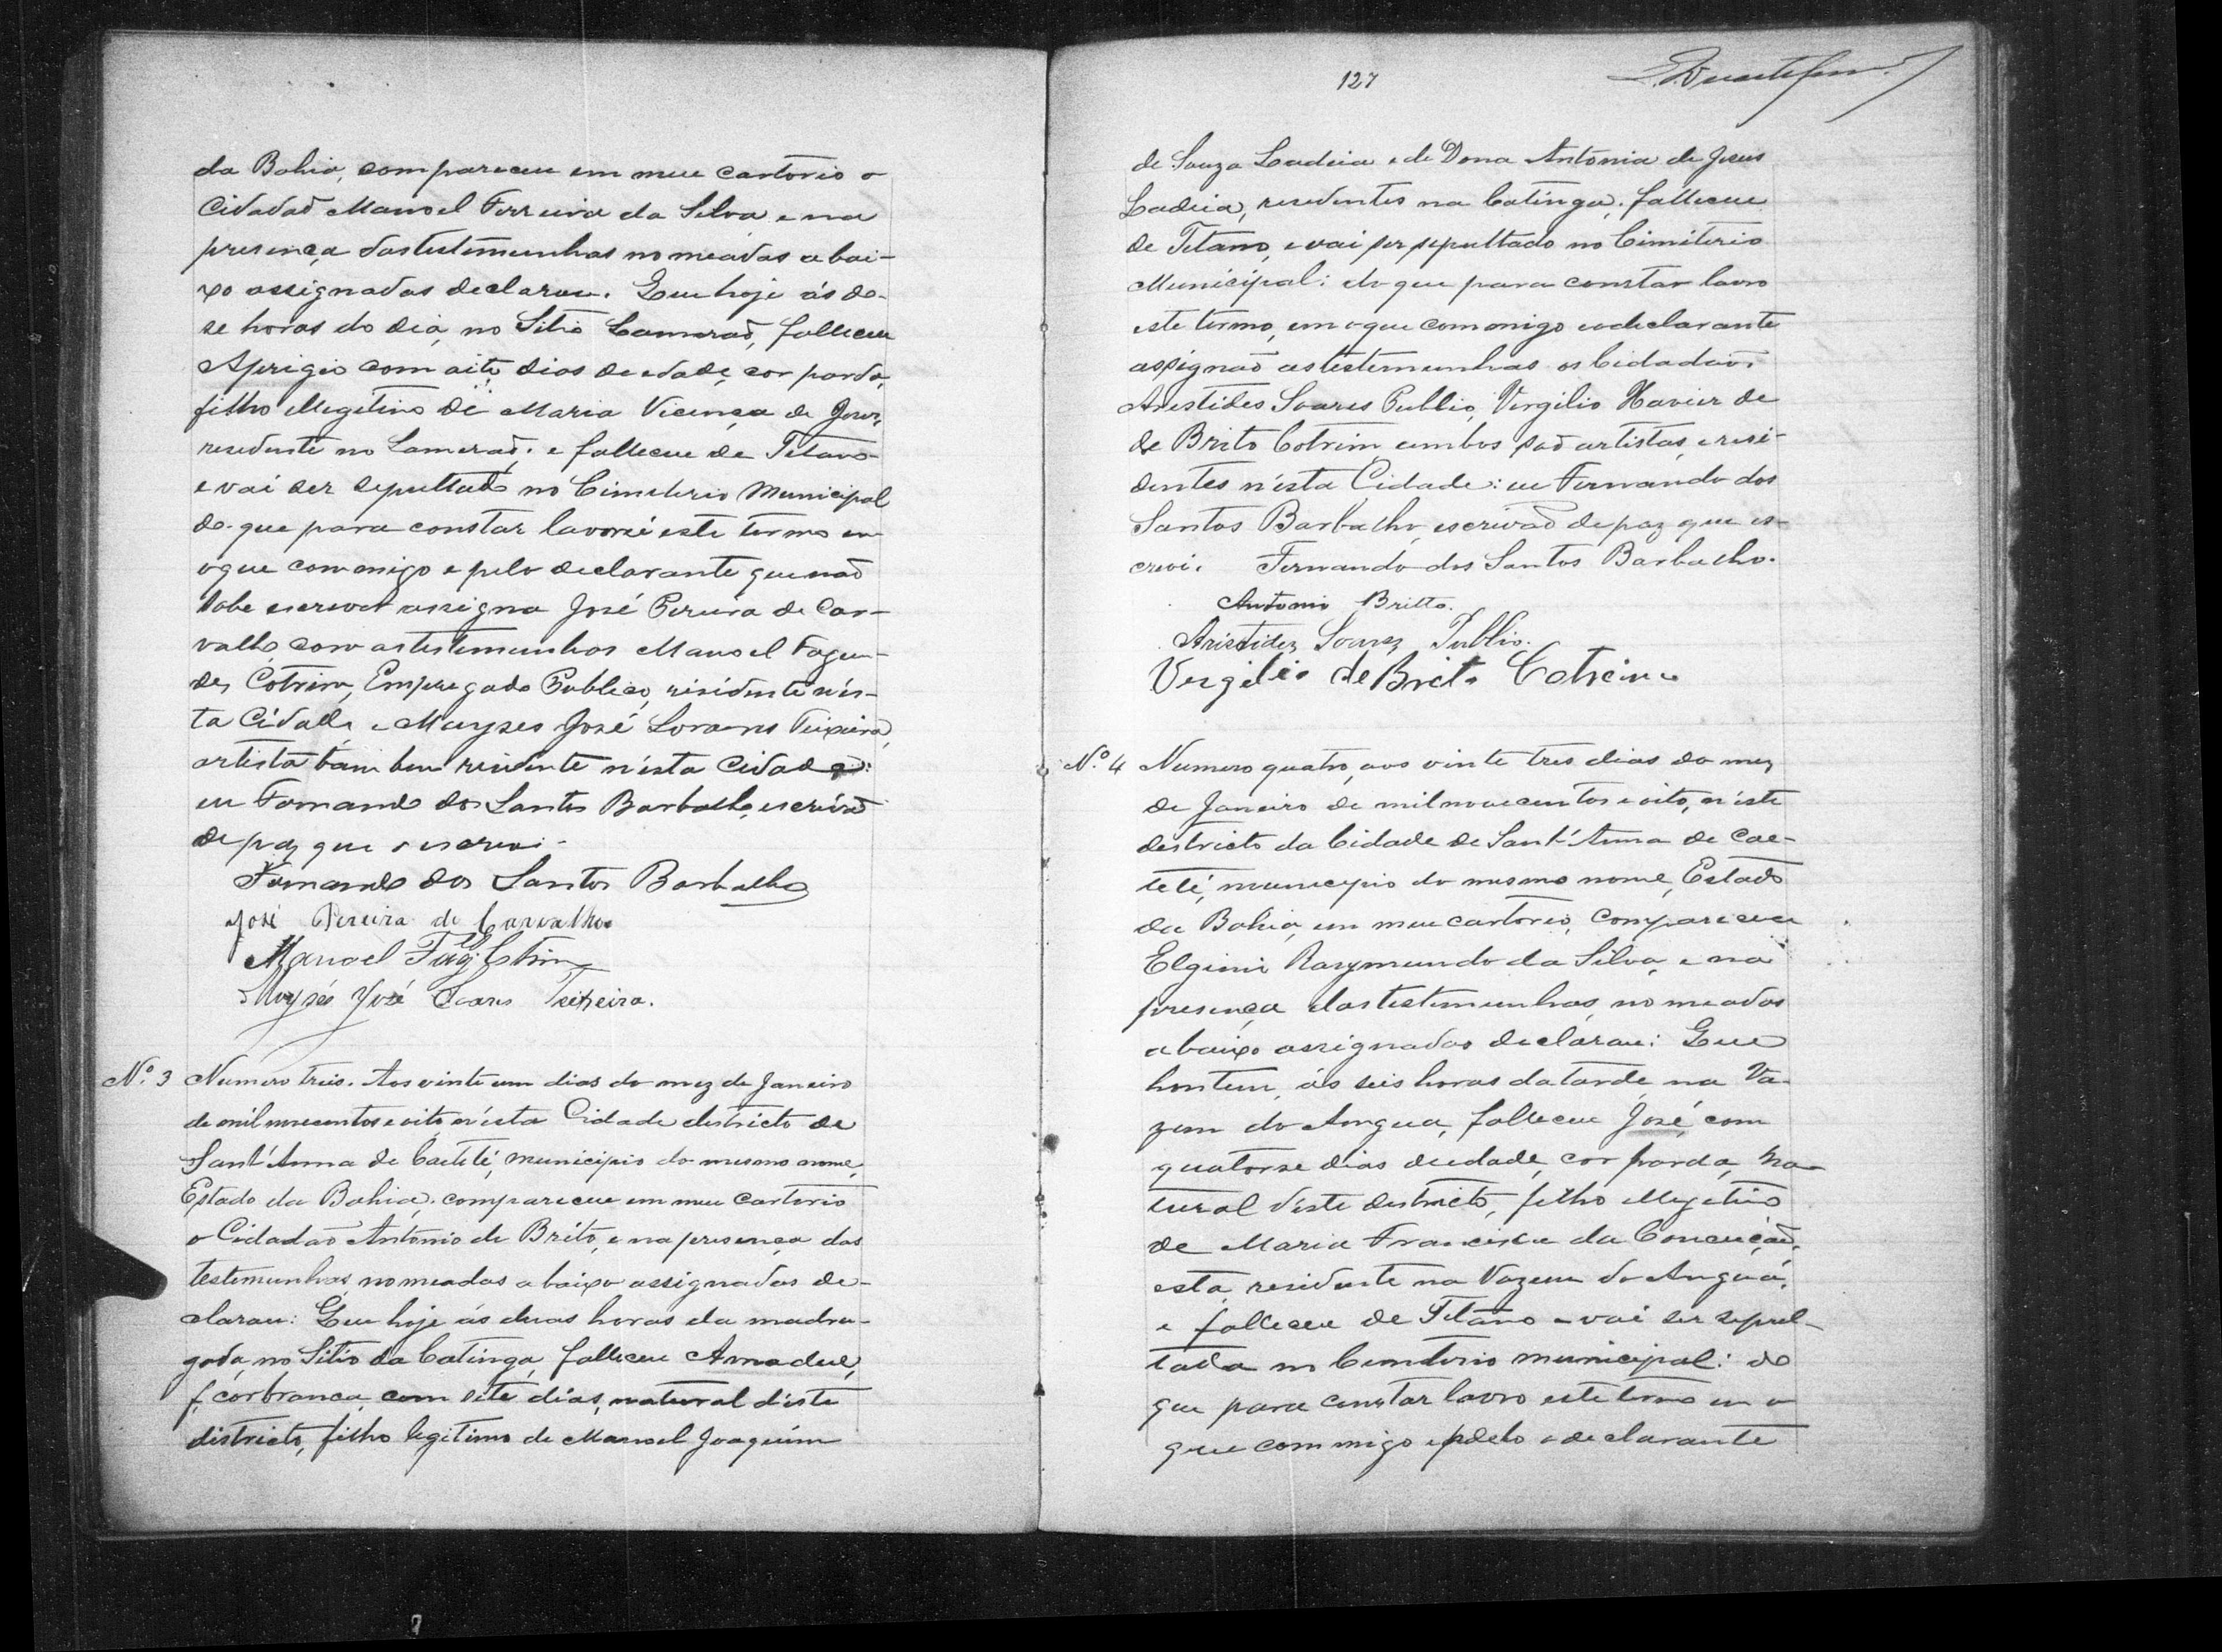 da Bahia, compareceu em meu cartorio o
Cidadaõ Manoel Ferreira da Silva e na
presença das testemunhas nomeadas abai-
xo assignadas declarou. Que hoje ás do-
se horas do dia, no Sitio Lameraõ, falleceu
Aprigio com oito dias de edade, cor parda,
filho illegitimo de Maria Vicença de Jesus,
residente no Lameraõ. e falleceu de Tetano
e vai ser sepultado no Cimeterio Municipal
do que para constar lavorei este termo em
o que commigo e pelo declarante que naõ
sabe escrever assigna José Pereira de Car-
valho com as testemunhas Manoel Fagun-
des Cotrim, Empregado Publico, residente n'es-
ta Cidade e Moyses José Soares Teixeira,
artista tambem residente n'esta Cidade:
eu Fernando dos Santos Barbalho, escrivaõ
de paz que o escrevi.
Fernando dos Santos Barbalho
José Pereira de Carvalho
Manoel Fag. Cotrim
Moysés José Soares Teixeira.
Nº. 3 Numero treis. Aos vinte um dias do mez de Janeiro
de mil novecentos e oito, n'esta Cidade districto de
Sant'Anna de Caeteté, municipio do mesmo nome,
Estado da Bahia. compareceu em meu cartorio
o Cidadaõ Antonio de Brito, e na presença das
testemunhas nomeadas abaixo assignadas de-
clarou: Que hoje ás duas horas da madru-
gada, no Sitio da Catinga, falleceu Amadeu,
cor branca, com sete dias, natural d'este
districto, filho legitimo de Manoel Joaquim
127
de Souza Ladeia e de Dona Antonia de Jesus
Ladeia, residentes na Catinga. falleceu
de Tetano, e vai ser sepultado no Cimiterio
Municipal: do que para constar lavro
este termo, em o que commigo e o declarante
assignaõ as testemunhas os Cidadaõs
Arestides Soares Publio, Virgilio Xavier de
de Brito Cotrim, ambos saõ artistas, e resi-
dentes n'esta Cidade: eu Fernando dos
Santos Barbalho, escrivaõ de paz que es-
crevi. Fernando dos Santos Barbalho.
Antonio Britto.
Aristides Soares Publio.
Vergilio de Brito Cotrim
Nº. 4 Numero quatro, aos vinte tres dias do mez
de Janeiro de mil novecentos e oito, n'este
destricto da Cidade de Sant'Anna de Cae-
teté, municipio do mesmo nome, Estado
da Bahia, em meu cartorio, compareceu
Raymundo da Silva, e na
presença das testemunhas nomeadas
abaixo assignadas declarou: Que
hontem, ás seis horas da tarde, na Va-
zem do Angua, falleceu José, com
quatorse dias deedade, cor parda, na-
tural d'este destricto, filho illegetimo
de Maria Francisca da Conceiçaõ,
esta residente na Vazem do Anguá,
e falleceu de Tetano e vai ser sepul-
tada no Cemiterio municipal: do
que para constar lavro este termo em o
que commigo e pelo o declarante